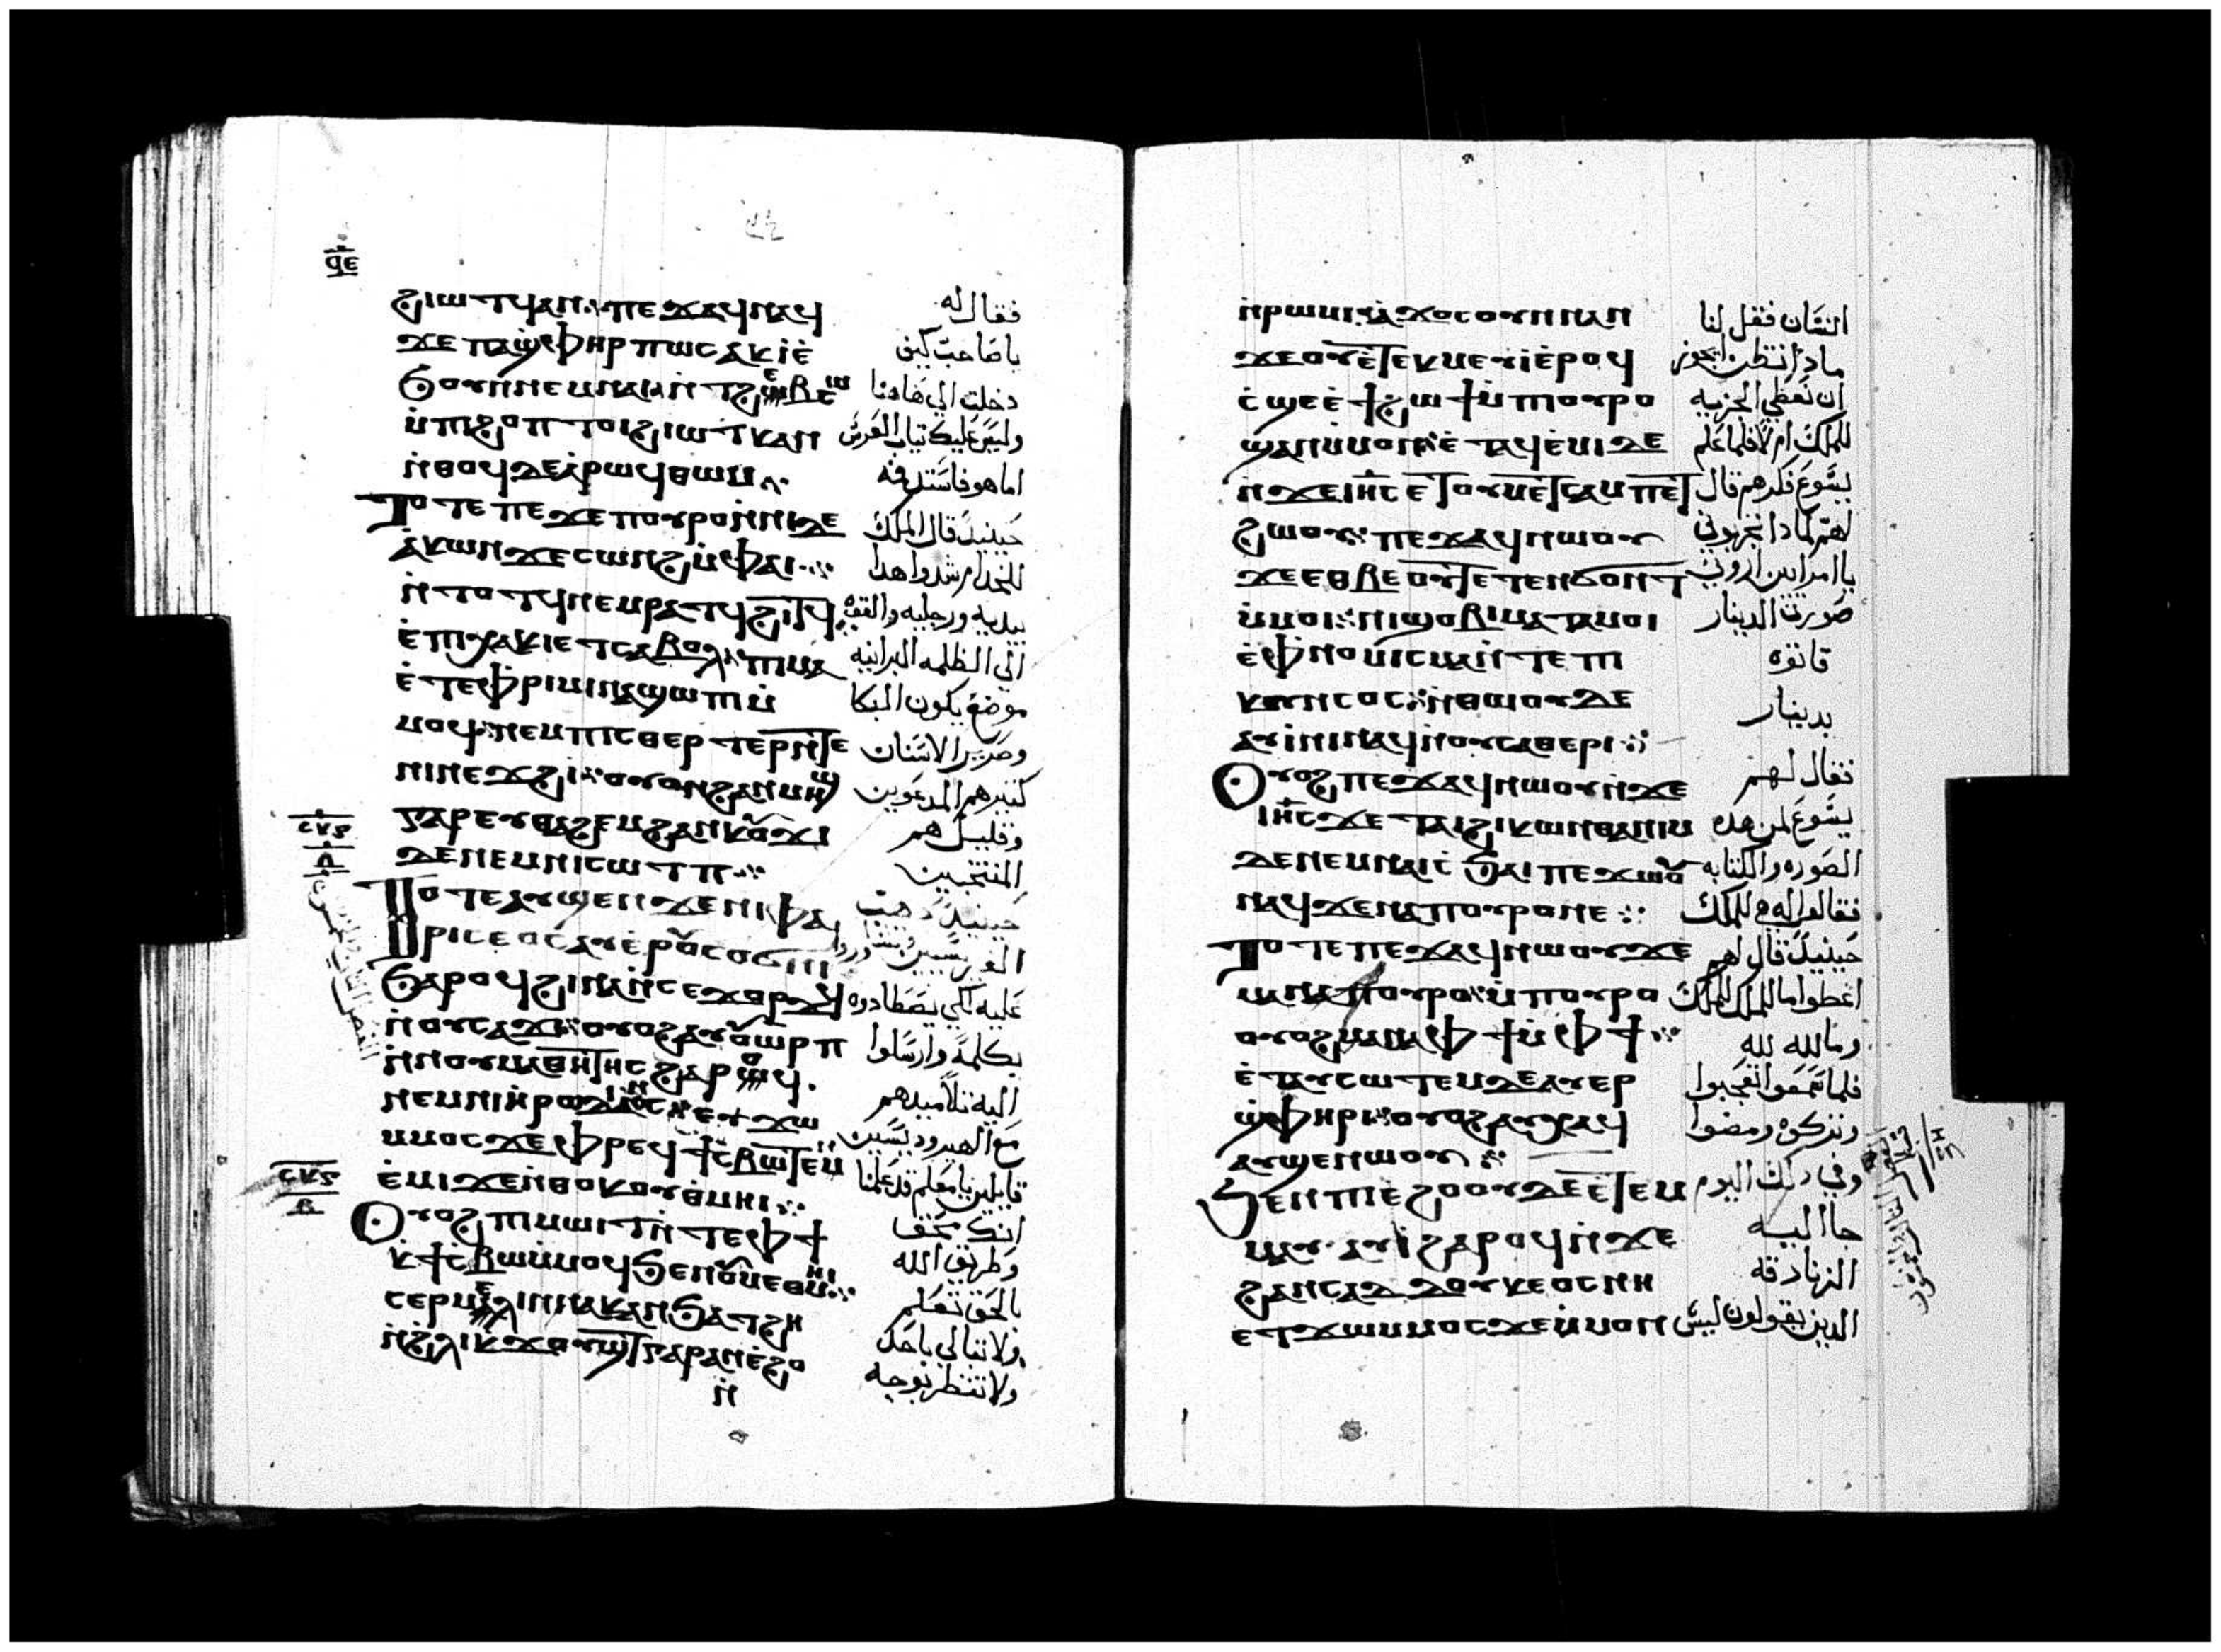 ϥⲉ
ϩⲓⲱⲧϥ ⲁⲛ ⲡⲉϫⲁϥ ⲛⲁϥ فقال له
ϫⲉ ⲡⲁϣⲫⲏⲣ ⲡⲱⲥ ⲁⲕⲓⲉ̀ ياصاحب كيف
ϧⲟⲩⲛ ⲛⲉⲙⲛⲁⲓ ⲛ̀ⲧϩⲉⲃⲥⲱ دخلت الي هاهنا
ⲙ̀ⲡⲓϩⲟⲡ ⲧⲟⲓ ϩⲓⲱⲧⲕ ⲁⲛ وليس عليك تياب العرس
ⲛ̀ⲑⲟϥ ⲇⲉ ⲁⲣⲱϥ ⲑⲱⲙ اما هو فاستد فه
ⲧⲟⲧⲉ ⲡⲉϫⲉ ⲡⲟⲩⲣⲟ ⲛ̀ⲛⲓⲇⲉ حينيد قال الملك
ⲁ̀ⲕⲱⲛ ϫⲉ ⲥⲱⲛϩ ⲙ̀ⲫⲁⲓ للخدام شدوا هدا
ⲛ̀ⲧⲟⲧϥ ⲛⲉⲙ ⲣⲁⲧϥ ϩⲓⲧϥ بيديه ورجليه والقوه
ⲉ̀ⲡⲓⲭⲁⲕⲓ ⲉⲧⲥⲁⲃⲟⲗ ⲡⲓⲙⲁ الي الظلمه البرانيه
ⲉ̀ⲧⲉ ⲫⲣⲓⲙⲓ ⲛⲁϣⲱⲡⲓ ⲙ̀ موضع يكون البكا
ⲙⲟϥ ⲛⲉⲙ ⲡⲓⲥⲑⲉⲣⲧⲉⲣ ⲛ̀ⲧⲉ وصرير الاسنان
ⲛⲓⲛⲉϫϩⲓ ⲟⲩⲟⲛ ϩⲁⲛⲙⲏϣ كتير هم المدعوين
ⲅⲁⲣ ⲉⲩⲑⲁϩⲉⲙ ϩⲁⲛⲕⲟⲩϫⲓ وقليل هم
ⲇⲉ ⲛⲉⲙ ⲛⲓⲥⲱⲧⲡ المنتخبين
ⲧⲟⲧⲉ ⲁⲩϣⲉⲛ ϫⲉ ⲛⲓⲫⲁ حينيد دهب
ⲣⲓⲥⲉⲟⲥ ⲁⲩⲉⲣⲟⲩⲥⲟϭⲛⲓ الفريسيين
ϧⲁⲣⲟϥ ϩⲓⲛⲁ ⲛ̀ⲥⲉϫⲟⲣϫϥ عليه لكي يصطادوه
ⲛ̀ⲟⲩⲥⲁϫⲓ ⲟⲩⲟϩ ⲁⲩⲟⲩⲱⲣⲡ بكلمة وارسلوا
ⲛ̀ⲛⲟⲩⲙⲁⲑⲏⲧⲏⲥ ϩⲁⲣⲟϥ اليه تلاميدهم
ⲛⲉⲙ ⲛⲓⲏ̀ⲣⲟⲇⲓⲁⲛⲟⲥ ⲉⲩϫⲱ مع الهيروديسيين
ⲙⲙⲟⲥ ϫⲉ ⲫⲣⲉϥϯⲥ̀ⲃⲱ ⲧⲉⲛ قايلين يا معلم قد علمنا
ⲉ̀ⲙⲓ ϫⲉ ⲛ̀ⲑⲟⲕ ⲟⲩⲑ̀ⲙⲏⲓ انك محق
ⲟⲩⲟϩ ⲡⲓⲙⲱⲓⲧ ⲛ̀ⲧⲉ ⲫϯ وطريق الله
ⲕ̀ϯⲥ̀ⲃⲱ ⲙ̀ⲙⲟϥ ϧⲉⲛ ⲟⲩⲙⲉⲑⲙⲏⲓ بالحق تعلم
ⲥⲉⲣⲙⲉⲗⲓⲛ ⲛⲁⲕ ⲁⲛ ϧⲁⲧϩⲏ ولا تبالي باحد
ⲛ̀ϩ̀ⲗⲓ ⲕϫⲟⲩϣⲧ ⲅⲁⲣ ⲁⲛ ⲉ̀ϩⲟ ولا تنظر بوجه
ⲛ̀
ⲛ̀ⲣⲱⲙⲓ ⲁ̀ϫⲟⲥ ⲟⲩⲛ ⲛⲁⲛ فقل لنا
ϫⲉ ⲟⲩ ⲉ̀ⲧⲉⲕⲙⲉⲩⲓ ⲉ̀ⲣⲟϥ
ⲥ̀ϣⲉ ⲉ̀ϯϩⲱϯ ⲙ̀ⲡⲟⲩⲣⲟ ان نعطي الجزيه
ϣⲁⲛ ⲙ̀ⲙⲟⲛ ⲉ̀ⲧⲁϥⲉ̀ⲙⲓ ⲇⲉ للملك ام لا فلما علم
ⲛ̀ϫⲉ ⲓⲏⲥ ⲉ̀ⲧⲟⲩⲙⲉⲧⲥⲁⲙⲡⲉⲧ يسوع فكرهم قال
ϩⲱⲟⲩ ⲡⲉϫⲁϥ ⲛⲱⲟⲩ لهم لمادا تجربوني
ϫⲉ ⲉⲑⲃⲉ ⲟⲩ ⲧⲉⲧⲉⲛϭⲟⲛⲧ يا امرايين اروني
ⲙ̀ⲙⲟⲓ ⲛⲓϣⲟⲃⲓ ⲙⲁⲧⲁⲙⲟⲓ صورت الدينار
ⲉ̀ⲫⲛⲟⲙⲓⲥⲙⲁ ⲛ̀ⲧⲉ ⲡⲓ فاتوه
ⲕⲏⲛⲥⲟⲥ ⲛ̀ⲑⲱⲟⲩ ⲇⲉ بدينار
ⲁⲩⲓ̀ⲛⲓ ⲛⲁϥ ⲛ̀ⲟⲩⲥⲁⲑⲉⲣⲓ
ⲟⲩⲟϩ ⲡⲉϫⲁϥ ⲛⲱⲟⲩ ⲛ̀ϫⲉ فقال لهم
ⲓⲏⲥ ϫⲉ ⲧⲁⲓϩⲓⲕⲱⲛ ⲑⲁⲛⲓⲙ يسوع لمن هده
ⲇⲉ ⲛⲉⲙ ⲛⲁⲓⲥ̀ϧⲁⲓ ⲡⲉϫⲱⲟⲩ الصوره والكتابه
ⲛⲁϥ ϫⲉ ⲛⲁⲡⲟⲩⲣⲟ ⲛⲉ فقالوا له هي للملك
ⲧⲟⲧⲉ ⲡⲉϫⲁϥ ⲛⲱⲟⲩ ϫⲉ حينيد قال لهم
ⲙⲁⲛⲁⲡⲟⲩⲣⲟ ⲙ̀ⲡⲟⲩⲣⲟ اعطوا ما للملك للملك
ⲟⲩⲟϩ ⲛⲁⲫϯ ⲙ̀ⲫϯ وما لله لله
ⲉ̀ⲧⲁⲩⲥⲱⲧⲉⲙ ⲇⲉ ⲁⲩⲉⲣ فلما سمعوا تعجبوا
ϣⲫⲏⲣⲓ ⲟⲩⲟϩ ⲁⲩⲭⲁϥ وتركوه ومضوا
ⲁⲩϣⲉⲛⲱⲟⲩ
ϧⲉⲛ ⲡⲓⲉ̀ϩⲟⲟⲩ ⲇⲉ ⲉ̀ⲧⲉⲙ وفي دلك اليوم
ⲙⲁⲩ ⲁⲩⲓ̀ ϩⲁⲣⲟϥ ⲛ̀ϫⲉ جا اليه
ϩⲁⲛⲥⲁⲇⲇⲟⲩⲕⲉⲟⲥ ⲛⲏ الزنادقه
ⲉⲧϫⲱⲙⲙⲟⲥ ϫⲉ ⲙ̀ⲙⲟⲛ الدين يقولون ليس